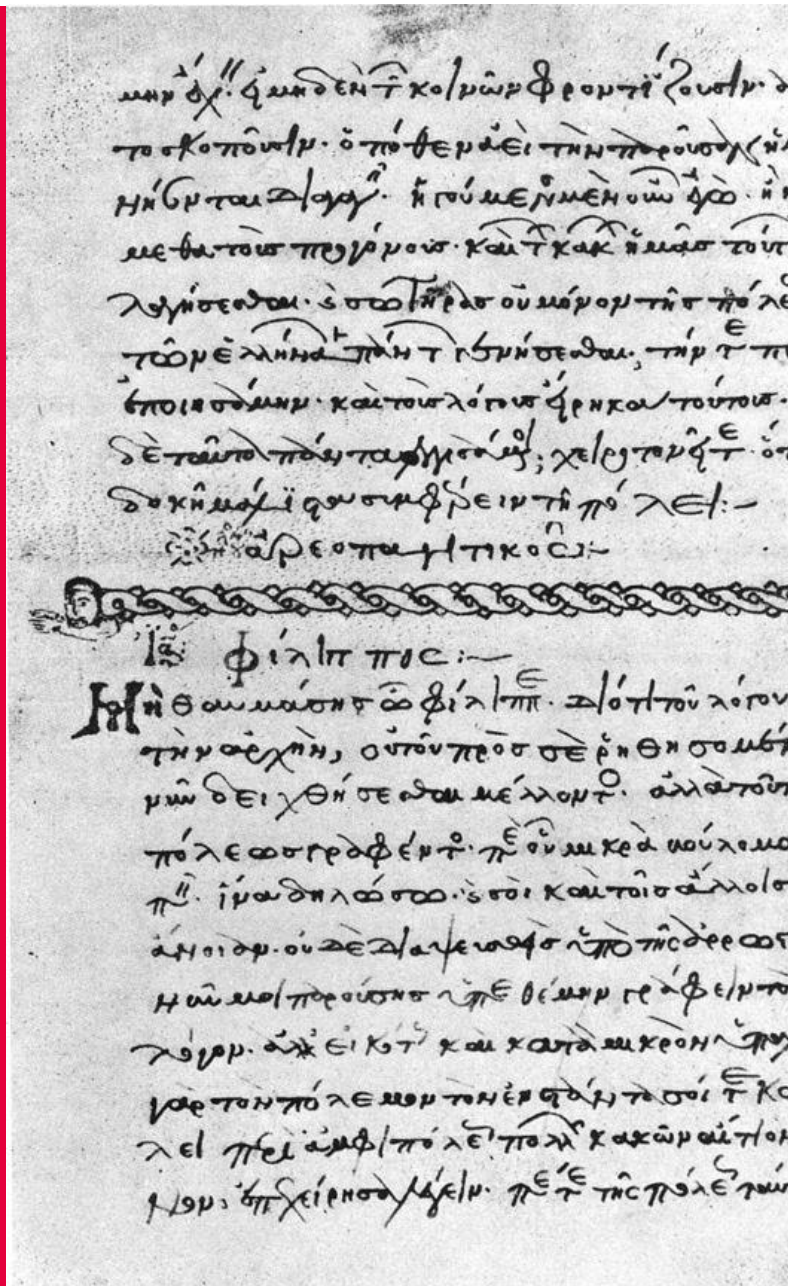 μηδὲν τ κοινῶν φροντίζουσιν·
το σκοποῦσιν· ὁπόθεν ἀεὶ τὴν παροῦσαν
μὲν οὖν
μεθα τοὺς προγόνους· καὶ τ κακ ἡμᾶς τούτ
λαγήσεσθαι· σωτῆρας οὐ μόνον τῆς πόλε
τῶν ἑλλήν πάντ γενήσεσθαι, τήν τε π
ἐποιησάμην· καὶ τοὺς λόγους εἴρηκα τούτους·
δὲ ταῦτα πάντα λογισάμ, χειροτονεῖτε ὅτ
δοκῆ μάλιστα συμφέρειν τῆ πόλει:–
ἀρεοπαγιτικός:–
ια φίλιππος:–
Μὴ θαυμάσης ὦ φίλιππε· διότι τοῦ λόγου
τὴν ἀρχὴν, οὐ τοῦ πρὸς σὲ ῥηθησομέν
νῦν δειχθήσεσθαι μέλλοντο· ἀλλὰ τοῦ
πόλεως γραφέντο· πε οὗ μικρὰ βούλομα
π· ἵνα δηλώσω· σοὶ καὶ τοῖς ἄλλοις
ἄνοιαν· οὐδὲ διαψευσθεὶς ὑπὸ τῆς ἀρρωστ
νῦν μοι παρούσης ὑπεθέμην γράφειν το
λόγον· ἀλλ εἰκότ καὶ κατὰ μικρὸν ὑπαχ
γὰρ τὸν πόλεμον τὸν ἐνστάντα σοί τε κα
λει περὶ ἀμφιπόλε πολλ κακῶν αἴτιον
νον, ἐπεχείρησα λέγειν· πε τε τῆς πόλε ταύτ